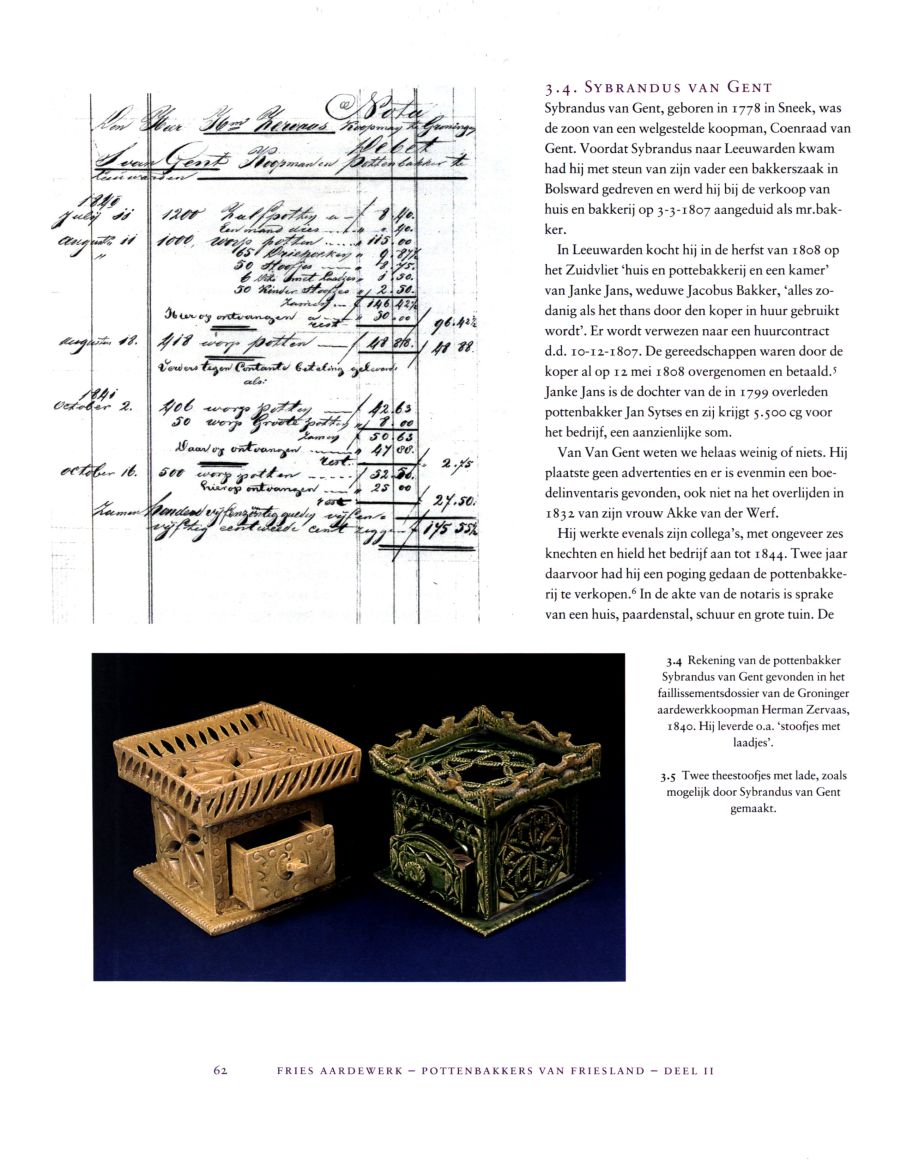 Nota
Den Heer Hm Zervaas Koopman te Groningen
Debet
S van Gent Koopman en pottenbakker te
Leeuwarden
1840
July 11 1200 Halfpotten a - f 8.40.
augustus 11 1000, worp potten ..... 115.00
50 Stoofjes
50 Kinder Stoofjes 2.50.
Zamen f 146.42½
Hier op ontvangen 50.00
rest 96.42½
augustus 18. 418 worp potten f 48 88
als:
1840
October 2. 406 worp potten f 42.63
50 worp Groote potten f 8.00
Zamen f 50 63
Daar op ontvangen 47 88.
rest. 2.75
October 16. 500 worp potten f 52.50.
hierop ontvangen 25 00
rest 27.50.
f 175 55½
3.4. Sybrandus van Gent
Sybrandus van Gent, geboren in 1778 in Sneek, was
de zoon van een welgestelde koopman, Coenraad van
Gent. Voordat Sybrandus naar Leeuwarden kwam
had hij met steun van zijn vader een bakkerszaak in
Bolsward gedreven en werd hij bij de verkoop van
huis en bakkerij op 3-3-1807 aangeduid als mr.bak-
ker.
In Leeuwarden kocht hij in de herfst van 1808 op
het Zuidvliet ‘huis en pottebakkerij en een kamer’
van Janke Jans, weduwe Jacobus Bakker, ‘alles zo-
danig als het thans door den koper in huur gebruikt
wordt’. Er wordt verwezen naar een huurcontract
d.d. 10-12-1807. De gereedschappen waren door de
koper al op 12 mei 1808 overgenomen en betaald.5
Janke Jans is de dochter van de in 1799 overleden
pottenbakker Jan Sytses en zij krijgt 5.500 cg voor
het bedrijf, een aanzienlijke som.
Van Van Gent weten we helaas weinig of niets. Hij
plaatste geen advertenties en er is evenmin een boe-
delinventaris gevonden, ook niet na het overlijden in
1832 van zijn vrouw Akke van der Werf.
Hij werkte evenals zijn collega’s, met ongeveer zes
knechten en hield het bedrijf aan tot 1844. Twee jaar
daarvoor had hij een poging gedaan de pottenbakke-
rij te verkopen.6 In de akte van de notaris is sprake
van een huis, paardenstal, schuur en grote tuin. De
3.4 Rekening van de pottenbakker
Sybrandus van Gent gevonden in het
faillissementsdossier van de Groninger
aardewerkkoopman Herman Zervaas,
1840. Hij leverde o.a. ‘stoofjes met
laadjes’.
3.5 Twee theestoofjes met lade, zoals
mogelijk door Sybrandus van Gent
gemaakt.
62 FRIES AARDEWERK – POTTENBAKKERS VAN FRIESLAND – DEEL II